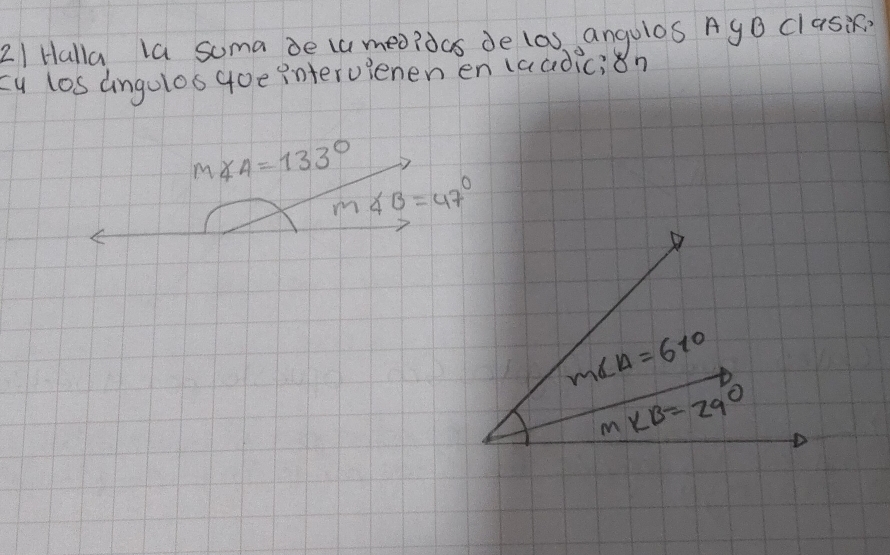 2) Halla la suma de la medidas de los angulos A y B clasifi-
ca los ángulos que intervienen en la adición
m∡A=133°
m∡B=47°
m∡A=61°
m∡B=29°